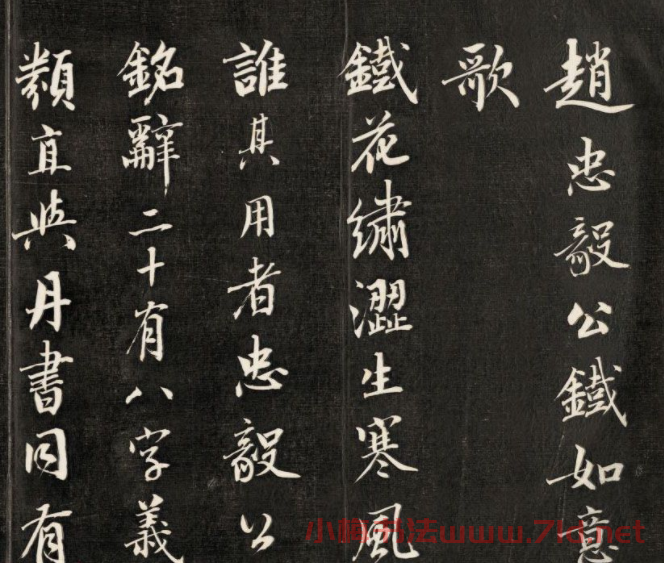 趙忠毅公鐵如意
歌
鐵花繡澀生寒風
誰其用者忠毅公
銘辭二十有八字義
類直與丹書同有
小楷书法www.7ld.net